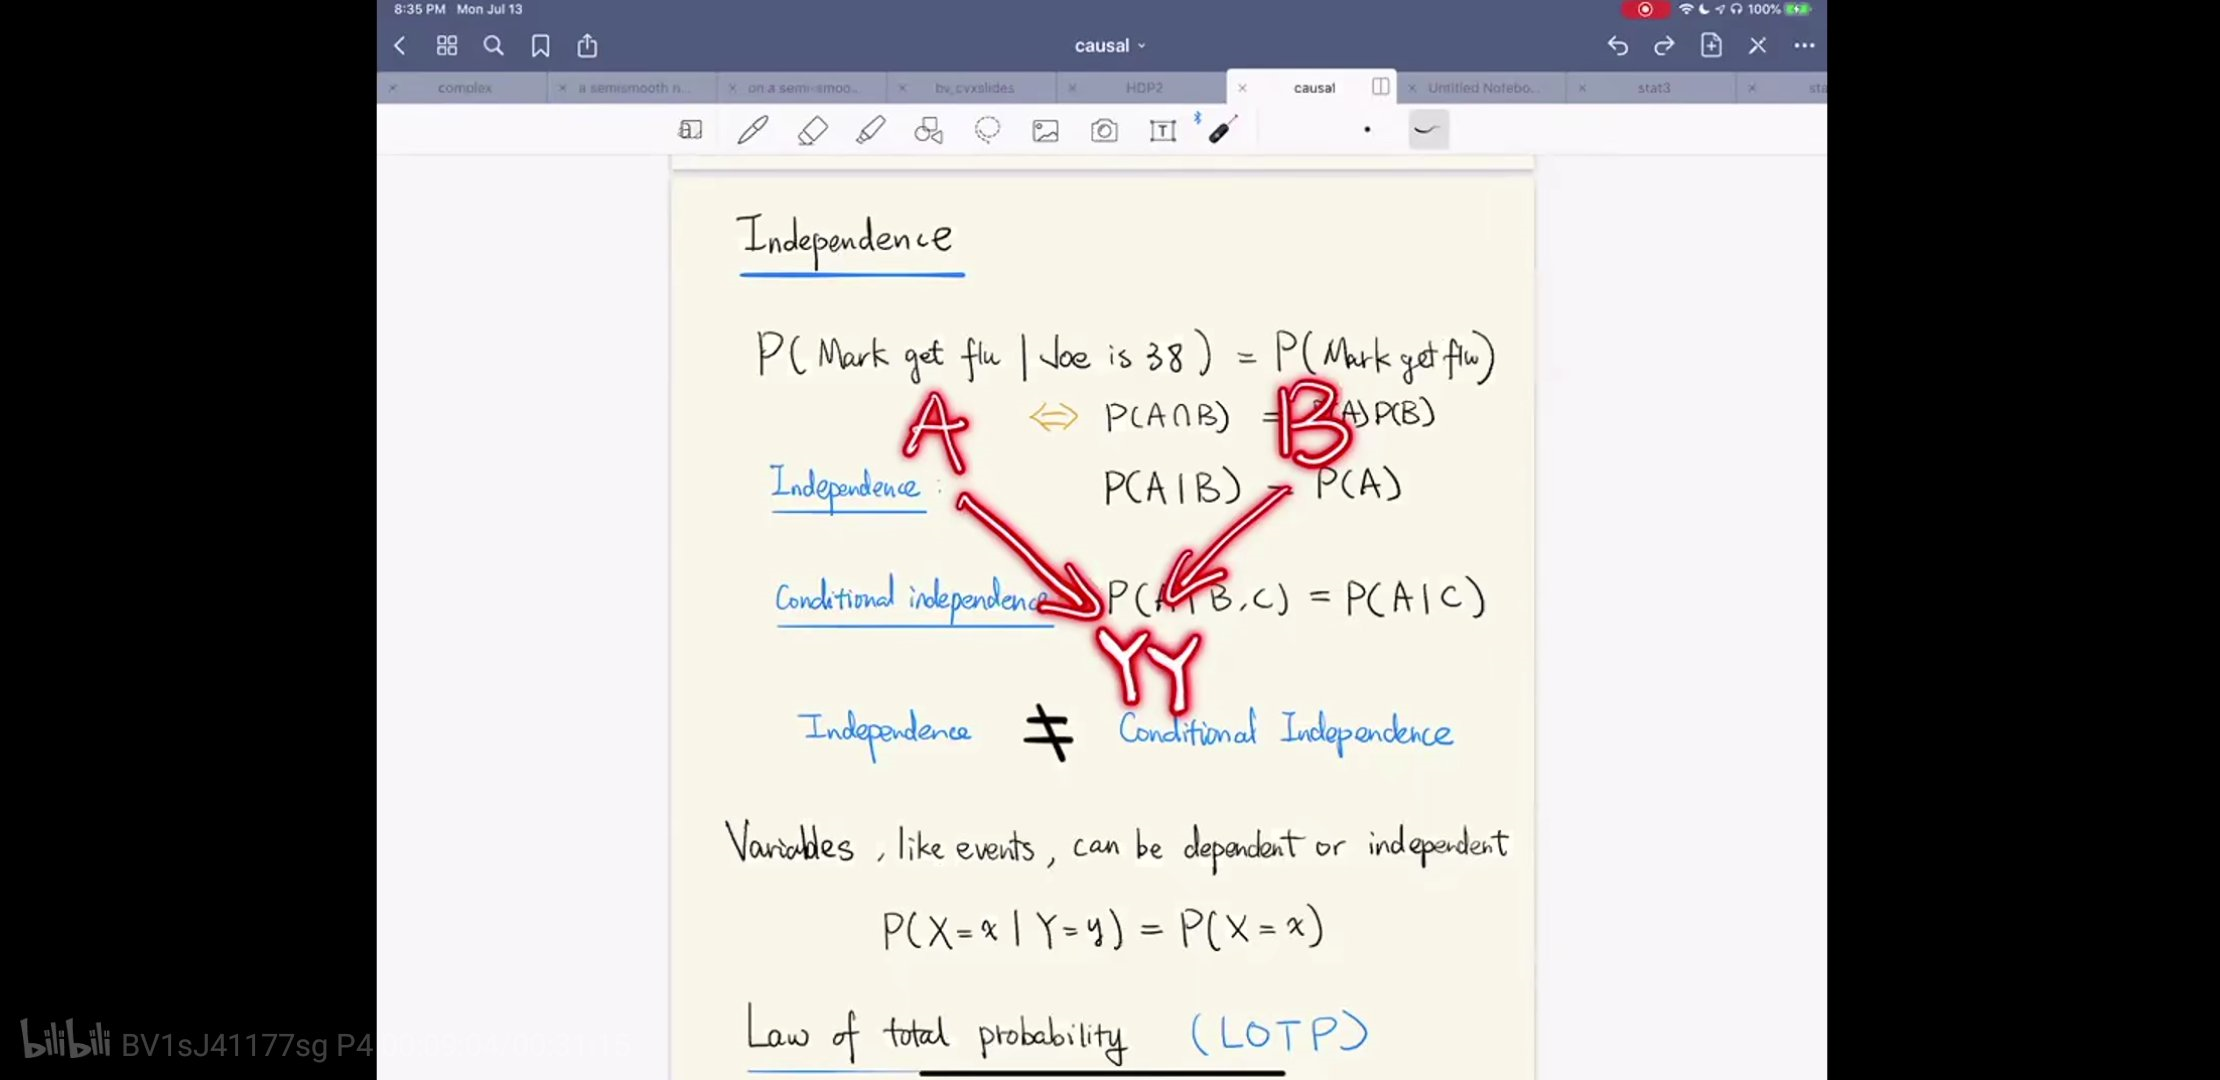 8:35 PM Mon Jul 13
100%
causal
complex
a semismooth n...
on a semi-smoo...
bv_cvxslides
HDP2
causal
Untitled Notebo...
stat3
sta
T
Independence
P( Mark get flu | Joe is 38 ) = P( Mark get flu)
A
B
⇔ P(A∩B) = P(A)P(B)
Independence : P(A|B) = P(A)
Conditional independence P(A|B,C) = P(A|C)
YY
Independence ≠ Conditional Independence
Variables, like events, can be dependent or independent
P(X=x | Y=y) = P(X=x)
Law of total probability (LOTP)
bilibili BV1sJ41177sg P4 00:09:04/00:31:15